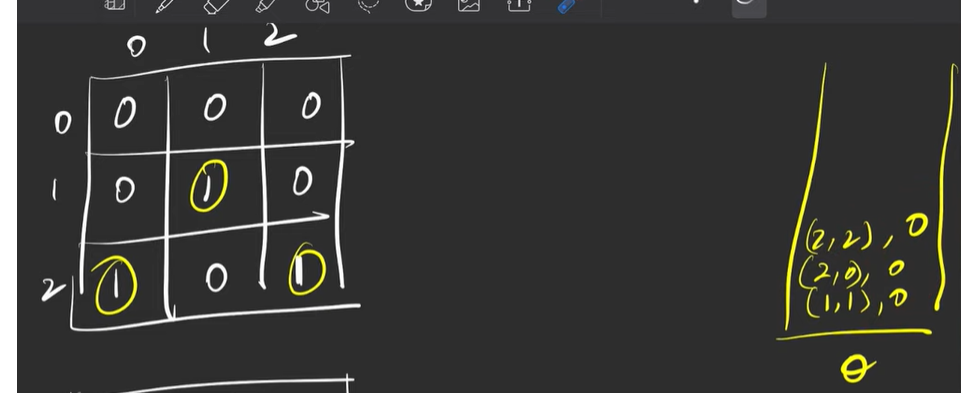 0 1 2
0 0 0 0
1 0 1 0
2 1 0 1
(2,2), 0
(2,0), 0
(1,1), 0
Q